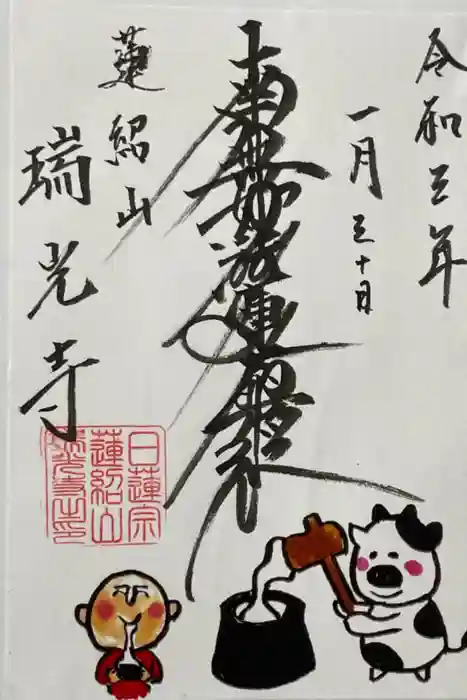 令和三年
一月三十日
南無妙法蓮華経
蓮紹山
瑞光寺
日蓮宗
蓮紹山
瑞光寺印